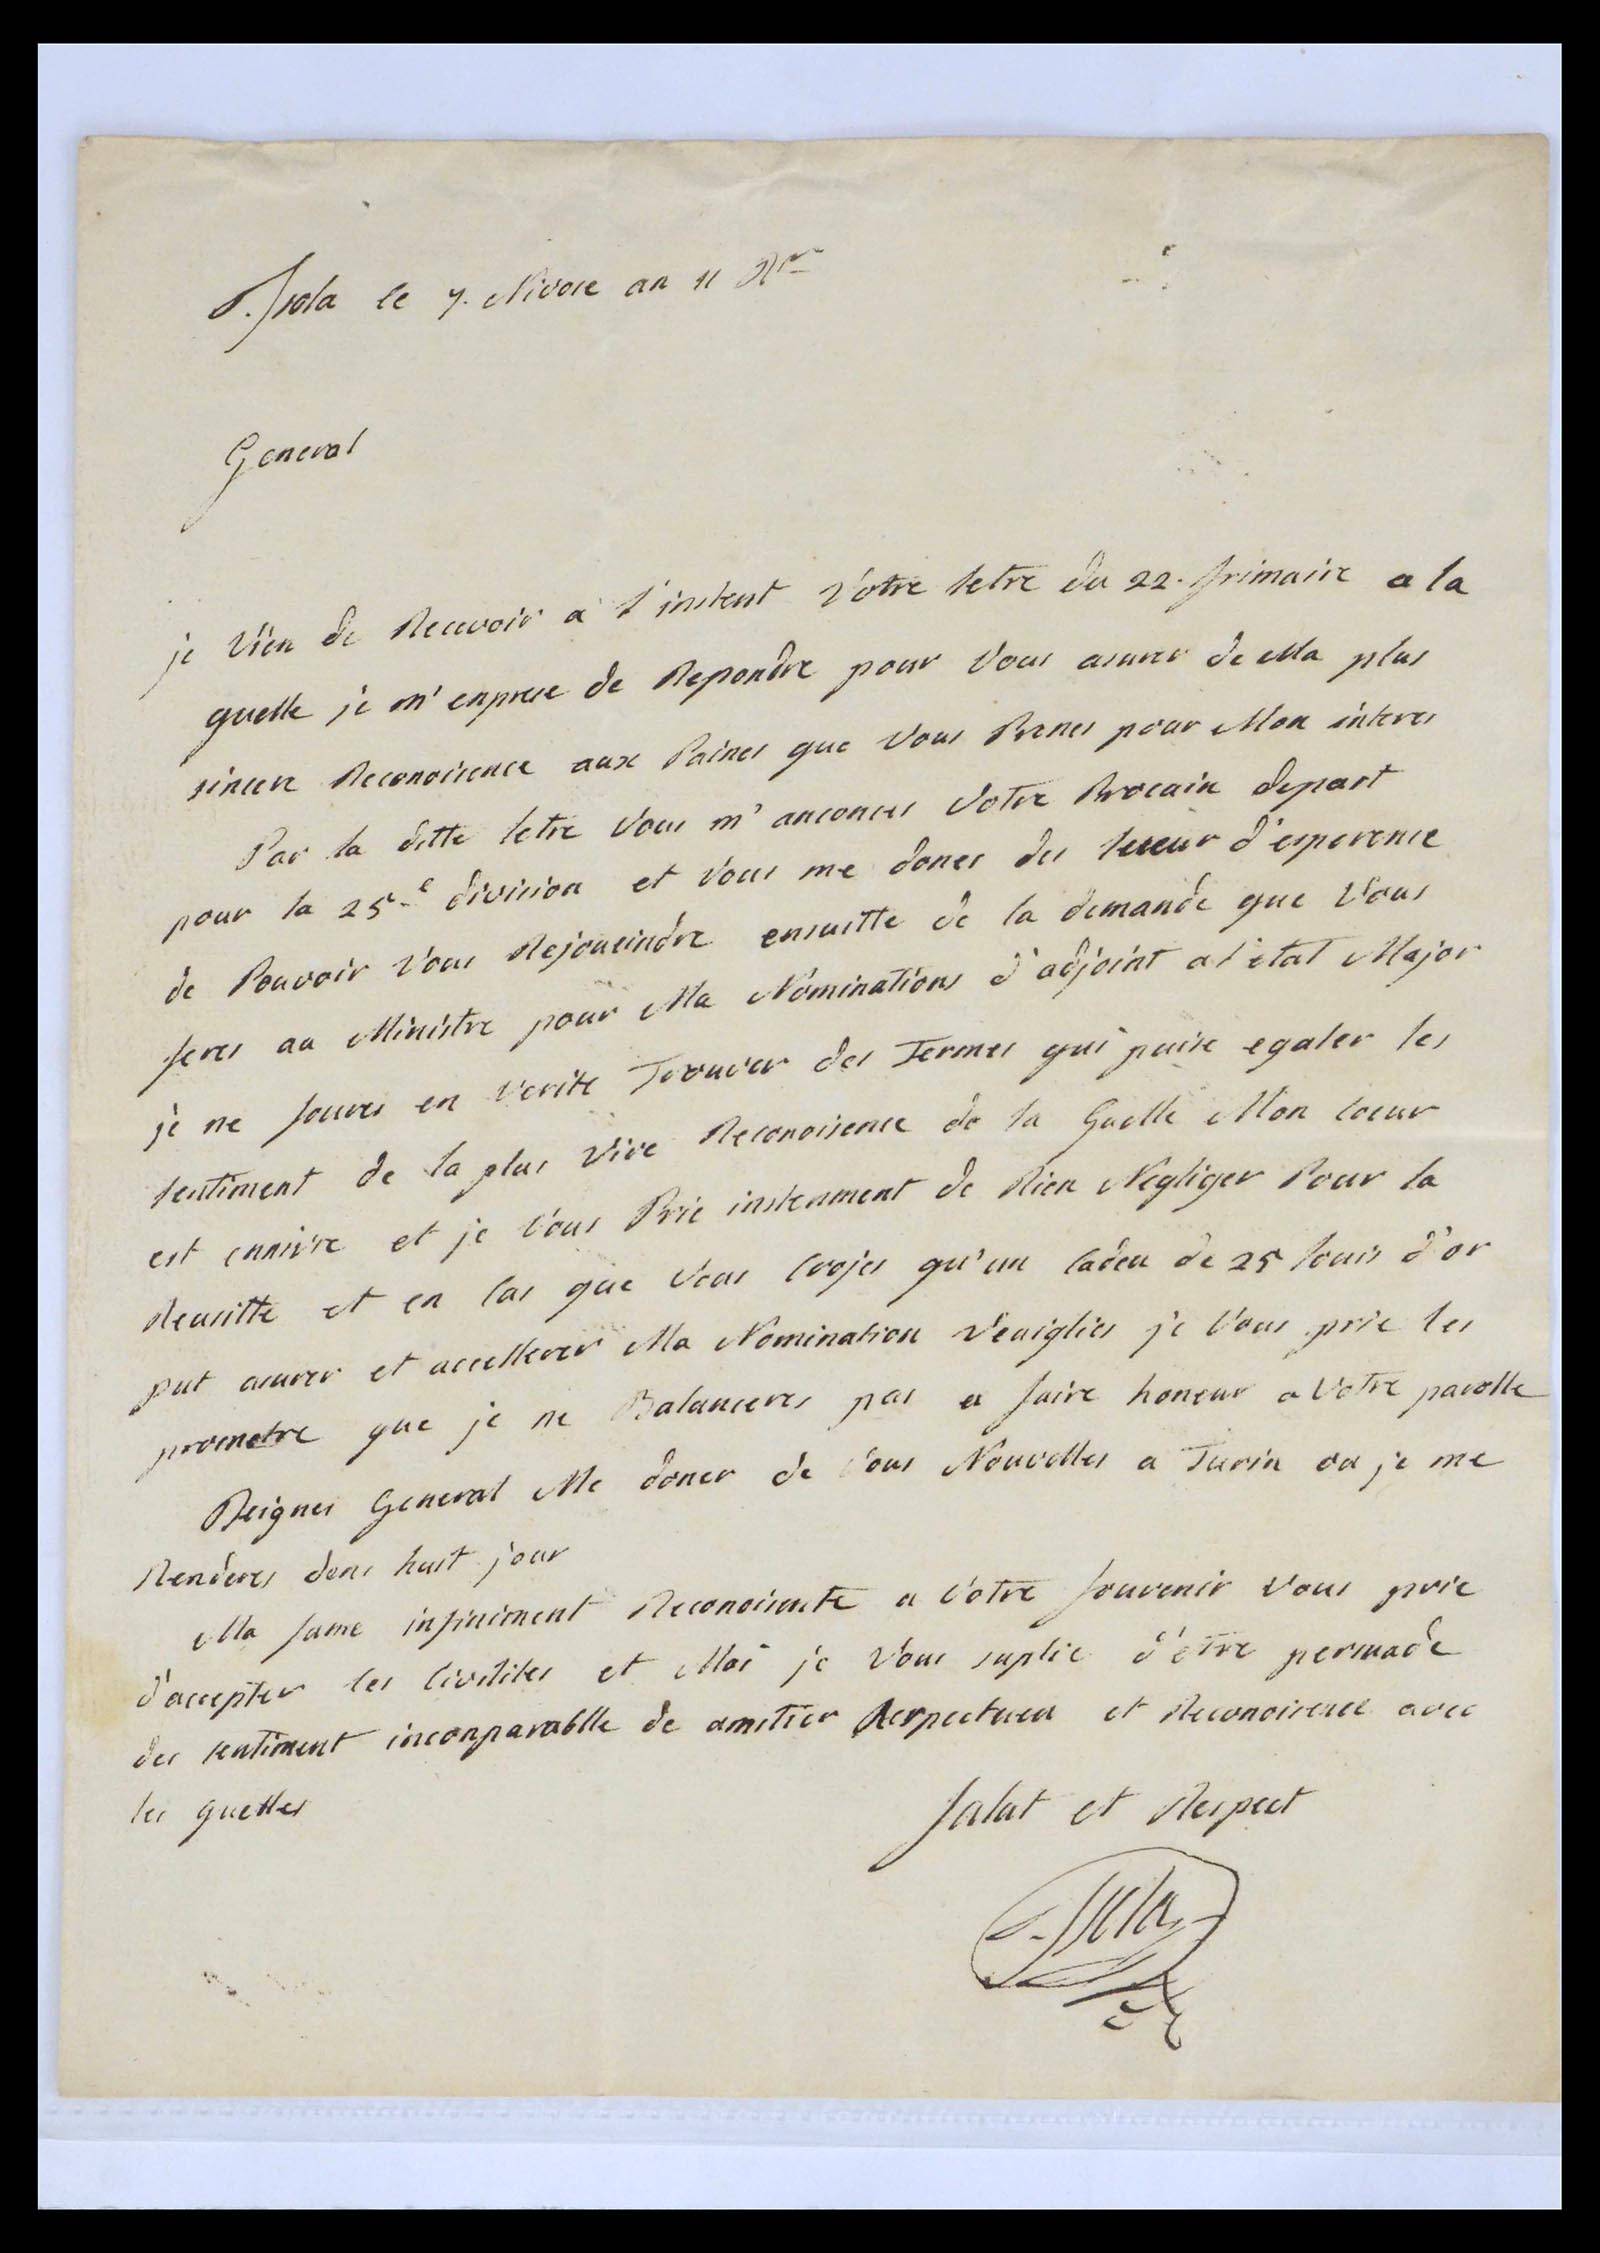 P. Isola le 7. Nivose an 11 Rer
General
je Vien de Recevoir a l'instent Votre letre du 22. frimaire a la
quelle je m'enprese de Repondre pour Vous asurer de Ma plus
sincere Reconoisence aux Paines que Vous Prenes pour Mon interes
Par la ditte letre Vous m'anonces Votre Procain depart
pour la 25.e division et Vous me dones des lueur d'esperence
de Pouvoir Vous Rejoueindre ensuitte de la demande que Vous
feres au Ministre pour Ma Nominations d'adjoint a l'etat Major
je ne soures en verite Trouver des Termes qui puise egaler les
sentiment de la plus Vive Reconoisence de la Quelle Mon Coeur
est ennivre et je Vous Prie instenment de Rien Negliger Pour la
Reusitte et en Cas que Vous Crojes qu'un Cadeu de 25 louis d'or
put asurer et accellerer Ma Nomination je Vous prie les
prometre que je ne Balanceres pas a faire honeur a Votre parolle
Deignes General Me doner de Vous Nouvelles a Turin ou je me
Renderes dens huit jour
Ma fame infiniment Reconoisente a Votre souvenir Vous prie
d'accepter les Civilites et Moi je Vous suplie d'etre persuade
des sentiment inconparablle de amitier Respectueu et Reconoisence avec
les quelles
Salut et Respect
P. Isola